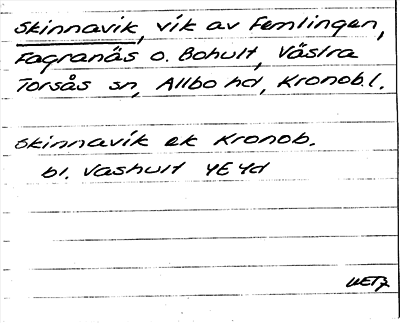 Skinnavik, vik av Femlingen,
Fagranäs o. Bohult, Västra
Torsås sn, Allbo hd, Kronob.l.
Skinnavik ek Kronob.
bl. Vashult 4E4d